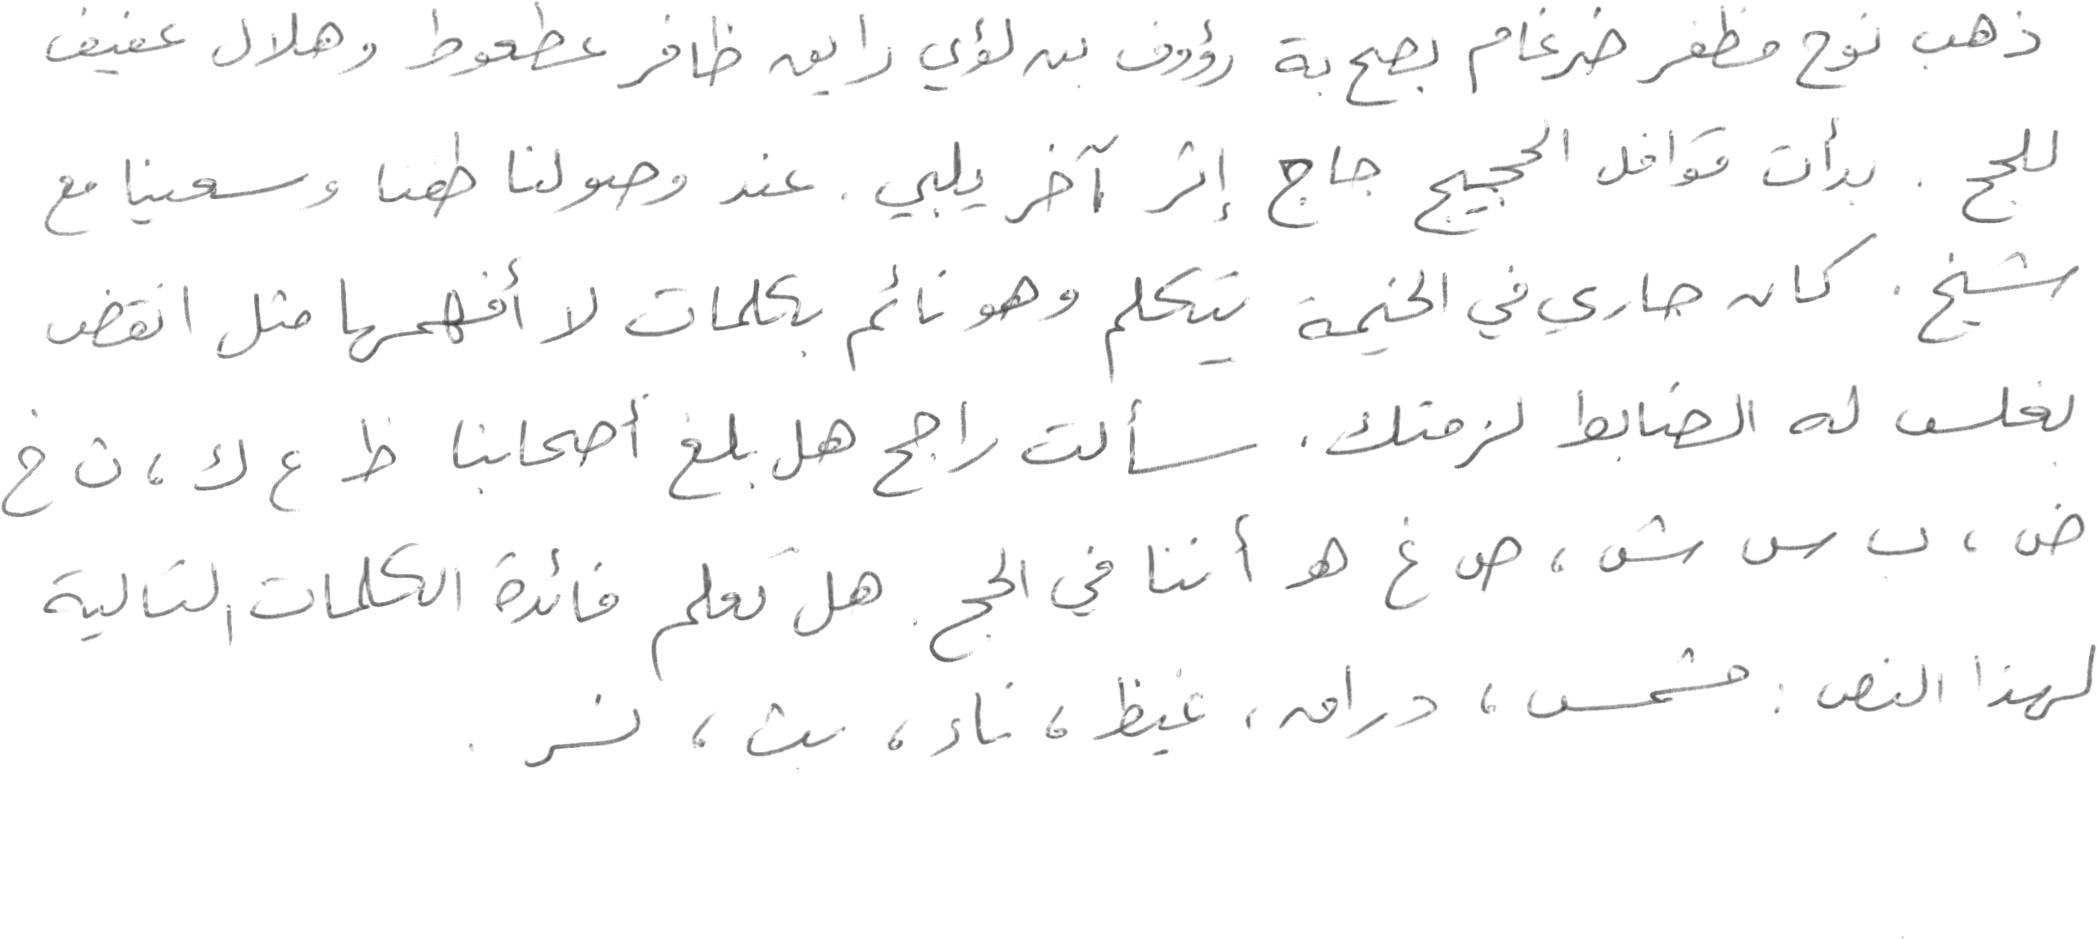 ذهب نوح مظفر ضرغام بصحبة رؤوف بن لؤي رايق ظافر عطعوط وهلال عفيف
للحج . بدأت قوافل الحجيج حاج إثر آخر يلبي . عند وصولنا طفنا وسعينا مع
شيخ . كان جاري في الخيمة يتكلم وهو نائم بكلمات لا أفهمها مثل انقض
بغلس له الضابط لزمتك . سألت راجح هل بلغ أصحابنا ظ ع ك ، ث خ
ض ، ب س ش ، ص غ هـ أننا في الحج . هل تعلم فائدة الكلمات التالية
لهذا النص : مشمس ، دراق ، غيظ ، ناء ، بث ، نسر .